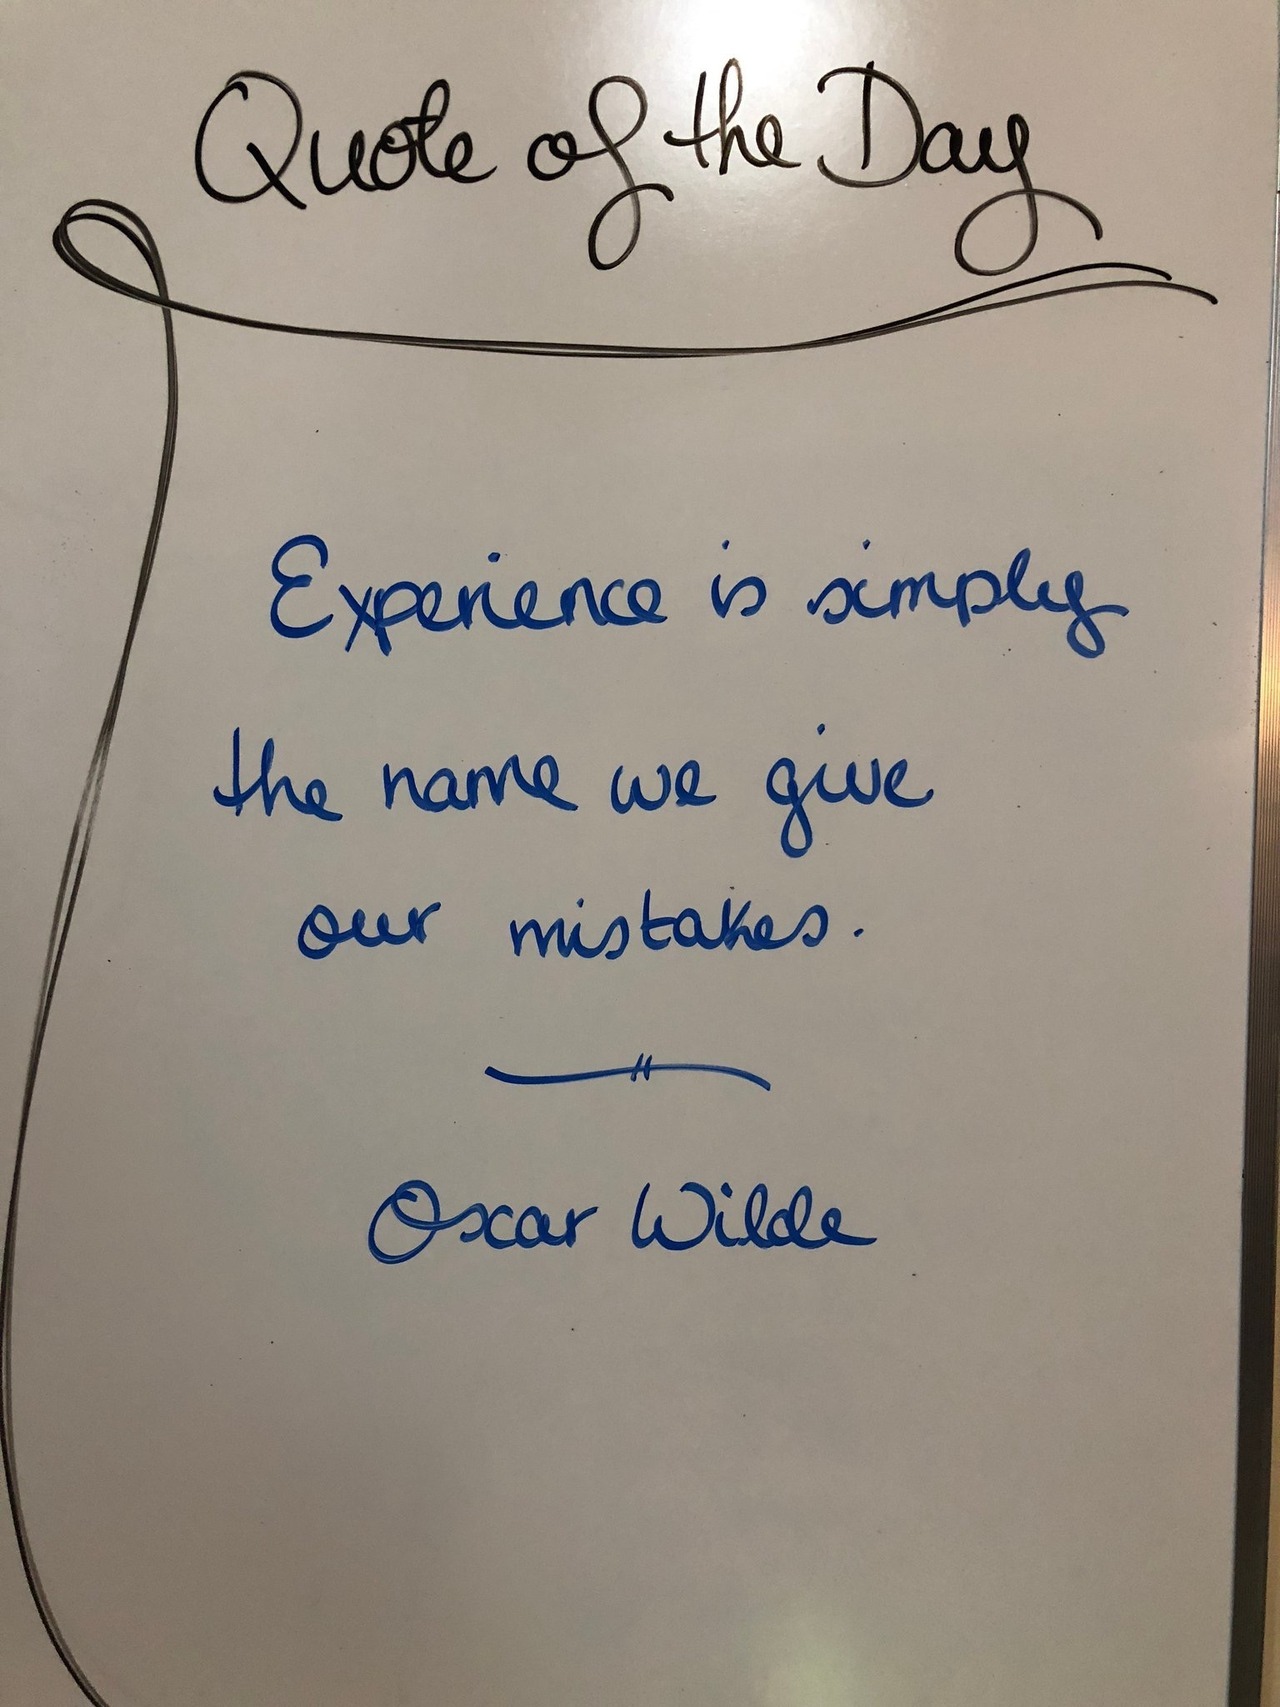 Quote of the Day
Experience is simply
the name we give
our mistakes.
Oscar Wilde